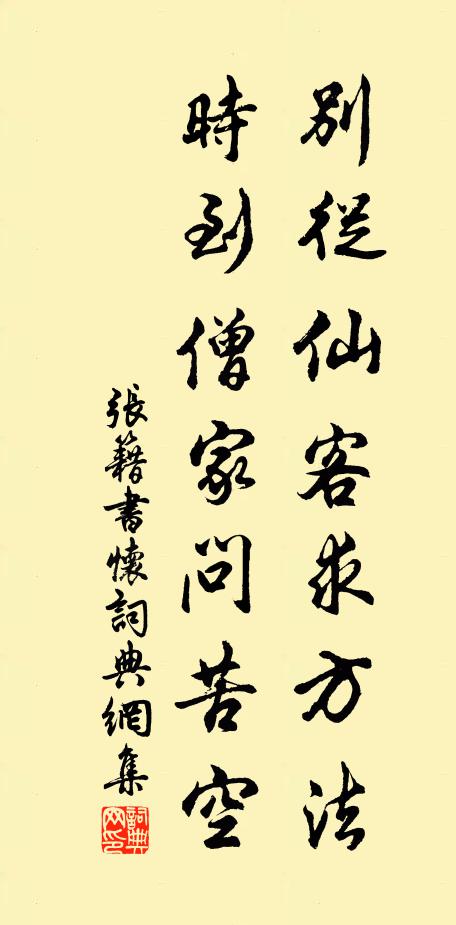 別從仙客求方法
時到僧家問苦空
張籍書懷詞典網集
詞典網印